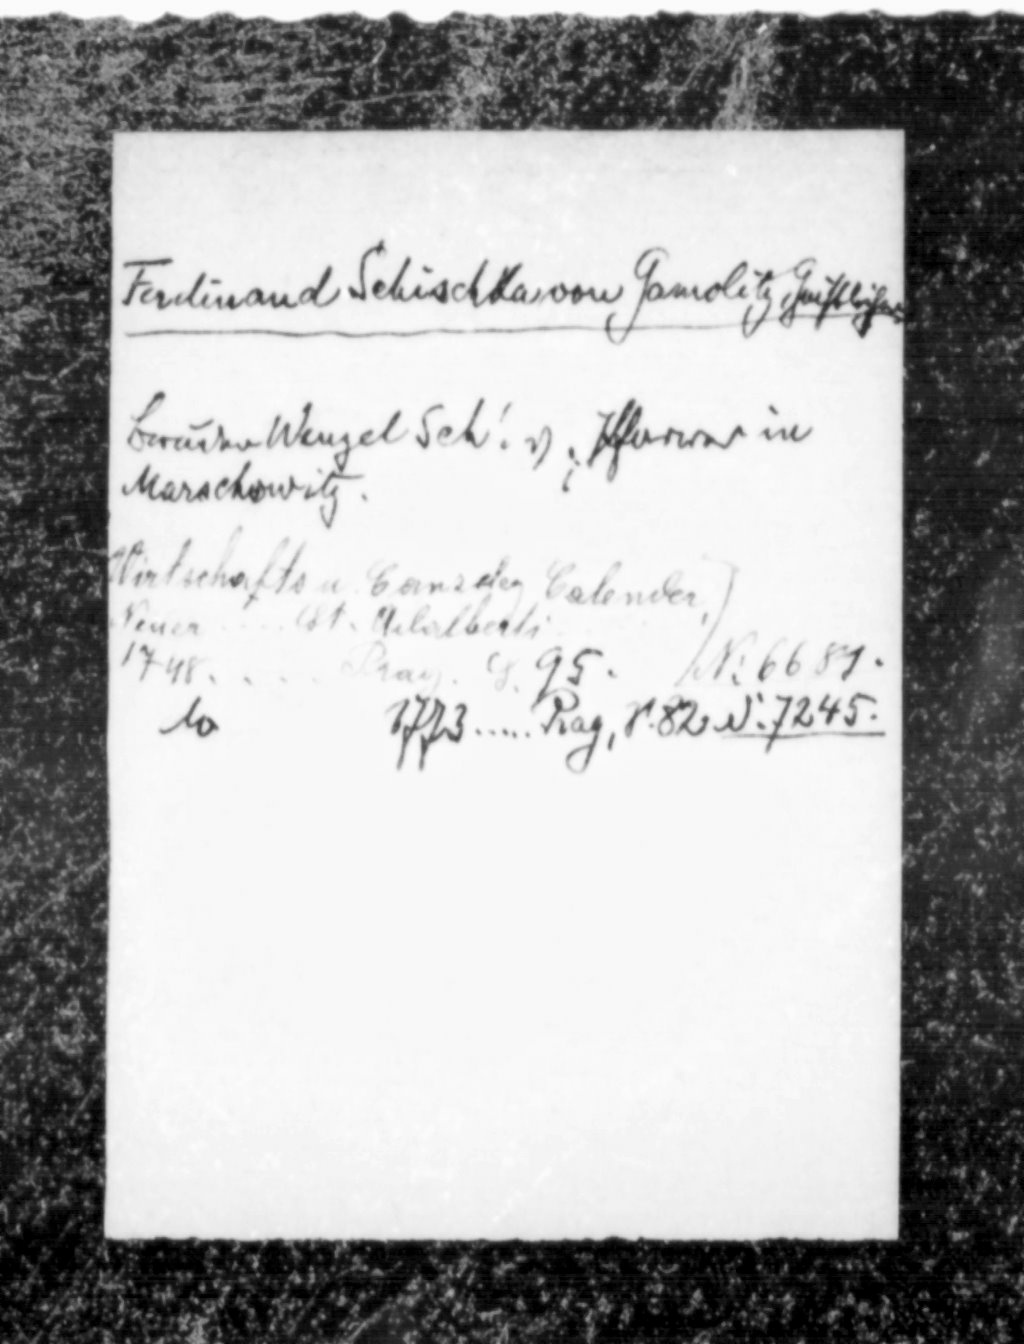 Ferdinand Schischka von Gamolitz, Geistlicher
Bruder Wenzel Sch. v ; Pfarrer in
Marschowitz.
Wirtschafts u. Canzley Calender,
Neuer .... St. Adalberti
1748..... Prag. S. 95. N: 6681.
1773..... Prag, S. 82 N. 7245.